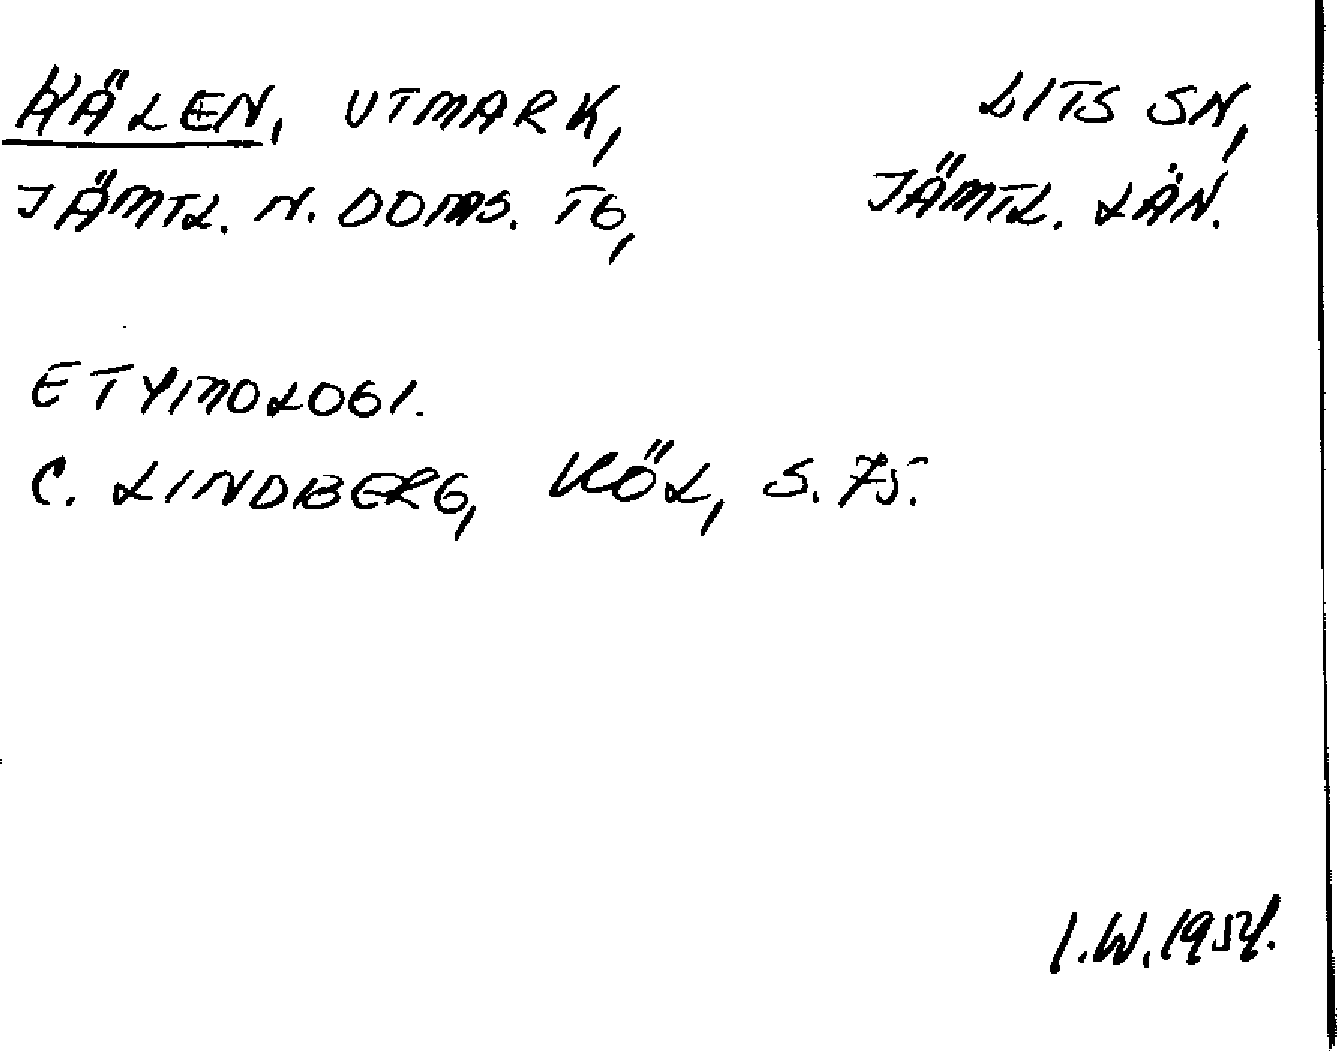 HÄLEN, UTMARK, LITS SN,
JÄMTL. N. DOMS. TG, JÄMTL. LÄN.
ETYMOLOGI.
C. LINDBERG, KÖL, S. 75.
I.W. 1954.